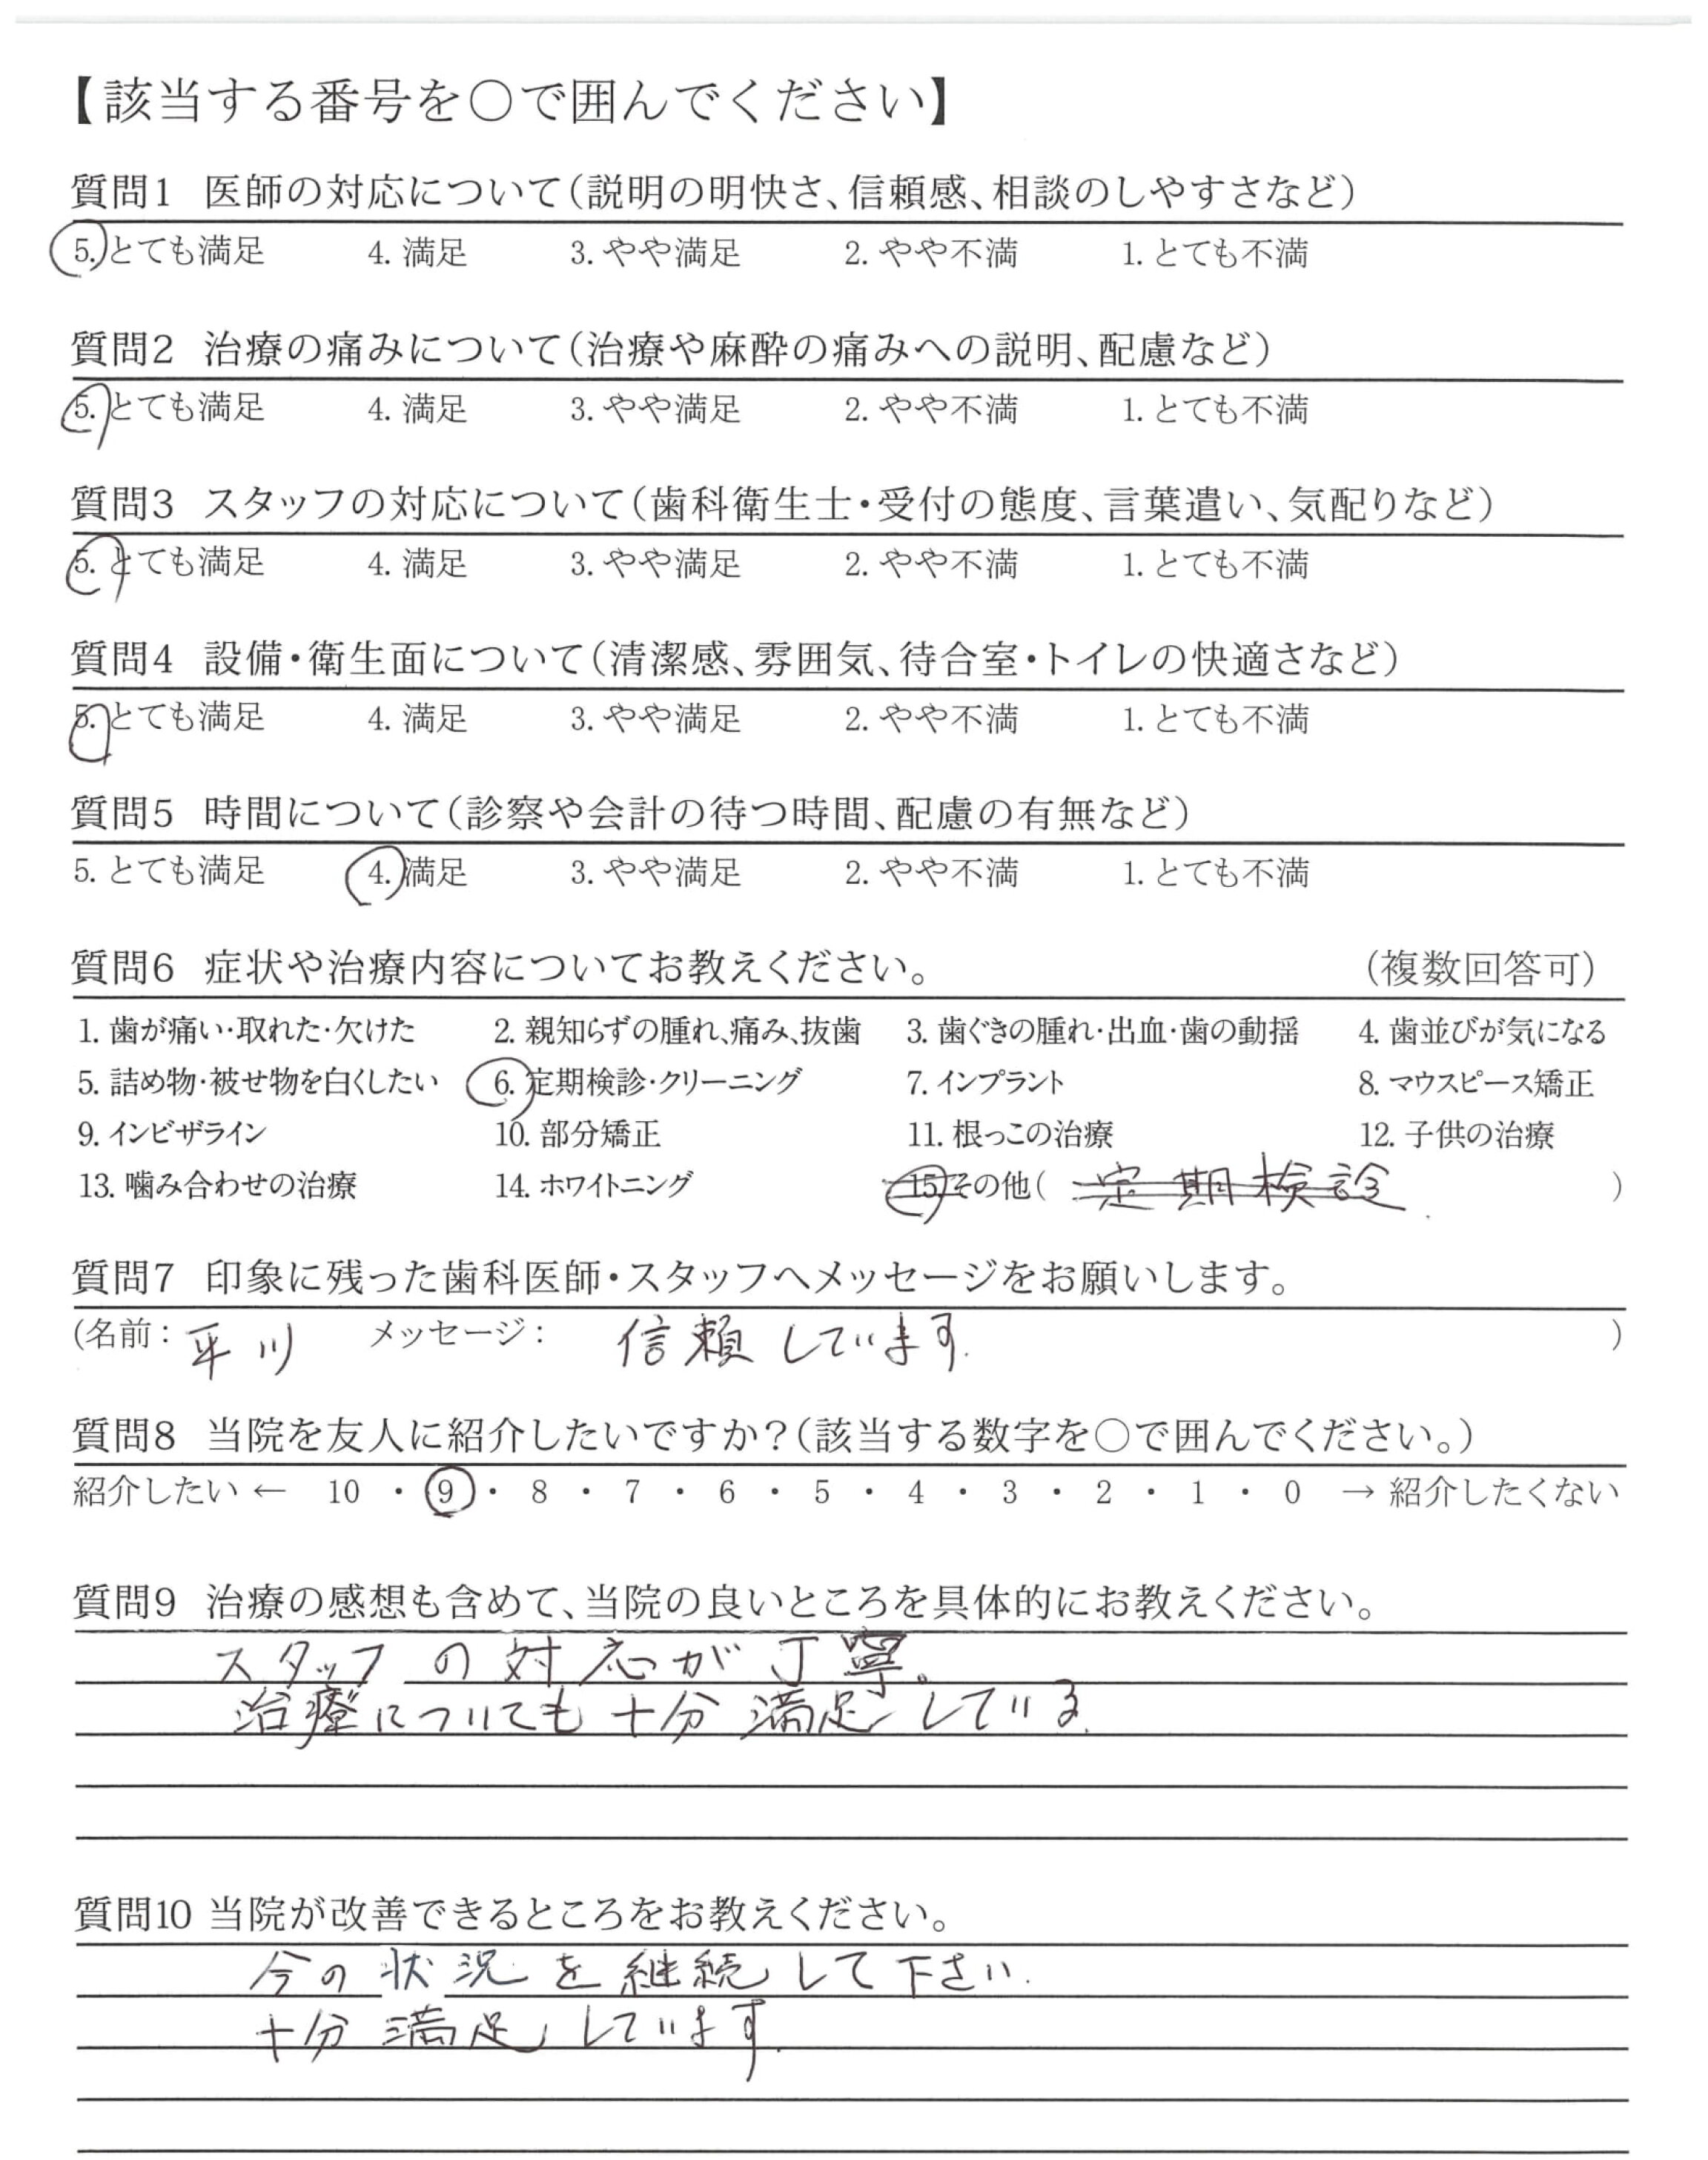 【該当する番号を〇で囲んでください】
質問1 医師の対応について(説明の明快さ、信頼感、相談のしやすさなど)
5. とても満足 4. 満足 3. やや満足 2. やや不満 1. とても不満
質問2 治療の痛みについて(治療や麻酔の痛みへの説明、配慮など)
5. とても満足 4. 満足 3. やや満足 2. やや不満 1. とても不満
質問3 スタッフの対応について(歯科衛生士・受付の態度、言葉遣い、気配りなど)
5. とても満足 4. 満足 3. やや満足 2. やや不満 1. とても不満
質問4 設備・衛生面について(清潔感、雰囲気、待合室・トイレの快適さなど)
5. とても満足 4. 満足 3. やや満足 2. やや不満 1. とても不満
質問5 時間について(診察や会計の待つ時間、配慮の有無など)
5. とても満足 4. 満足 3. やや満足 2. やや不満 1. とても不満
質問6 症状や治療内容についてお教えください。 (複数回答可)
1. 歯が痛い・取れた・欠けた 2. 親知らずの腫れ、痛み、抜歯 3. 歯ぐきの腫れ・出血・歯の動揺 4. 歯並びが気になる
5. 詰め物・被せ物を白くしたい 6. 定期検診・クリーニング 7. インプラント 8. マウスピース矯正
9. インビザライン 10. 部分矯正 11. 根っこの治療 12. 子供の治療
13. 噛み合わせの治療 14. ホワイトニング 15. その他( 定期検診 )
質問7 印象に残った歯科医師・スタッフへメッセージをお願いします。
(名前: 平川 メッセージ: 信頼しています。 )
質問8 当院を友人に紹介したいですか?(該当する数字を〇で囲んでください。)
紹介したい ← 10 ・ 9 ・ 8 ・ 7 ・ 6 ・ 5 ・ 4 ・ 3 ・ 2 ・ 1 ・ 0 → 紹介したくない
質問9 治療の感想も含めて、当院の良いところを具体的にお教えください。
スタッフの対応が丁寧。
治療についても十分満足している。
質問10 当院が改善できるところをお教えください。
今の状況を継続して下さい.
十分満足しています.